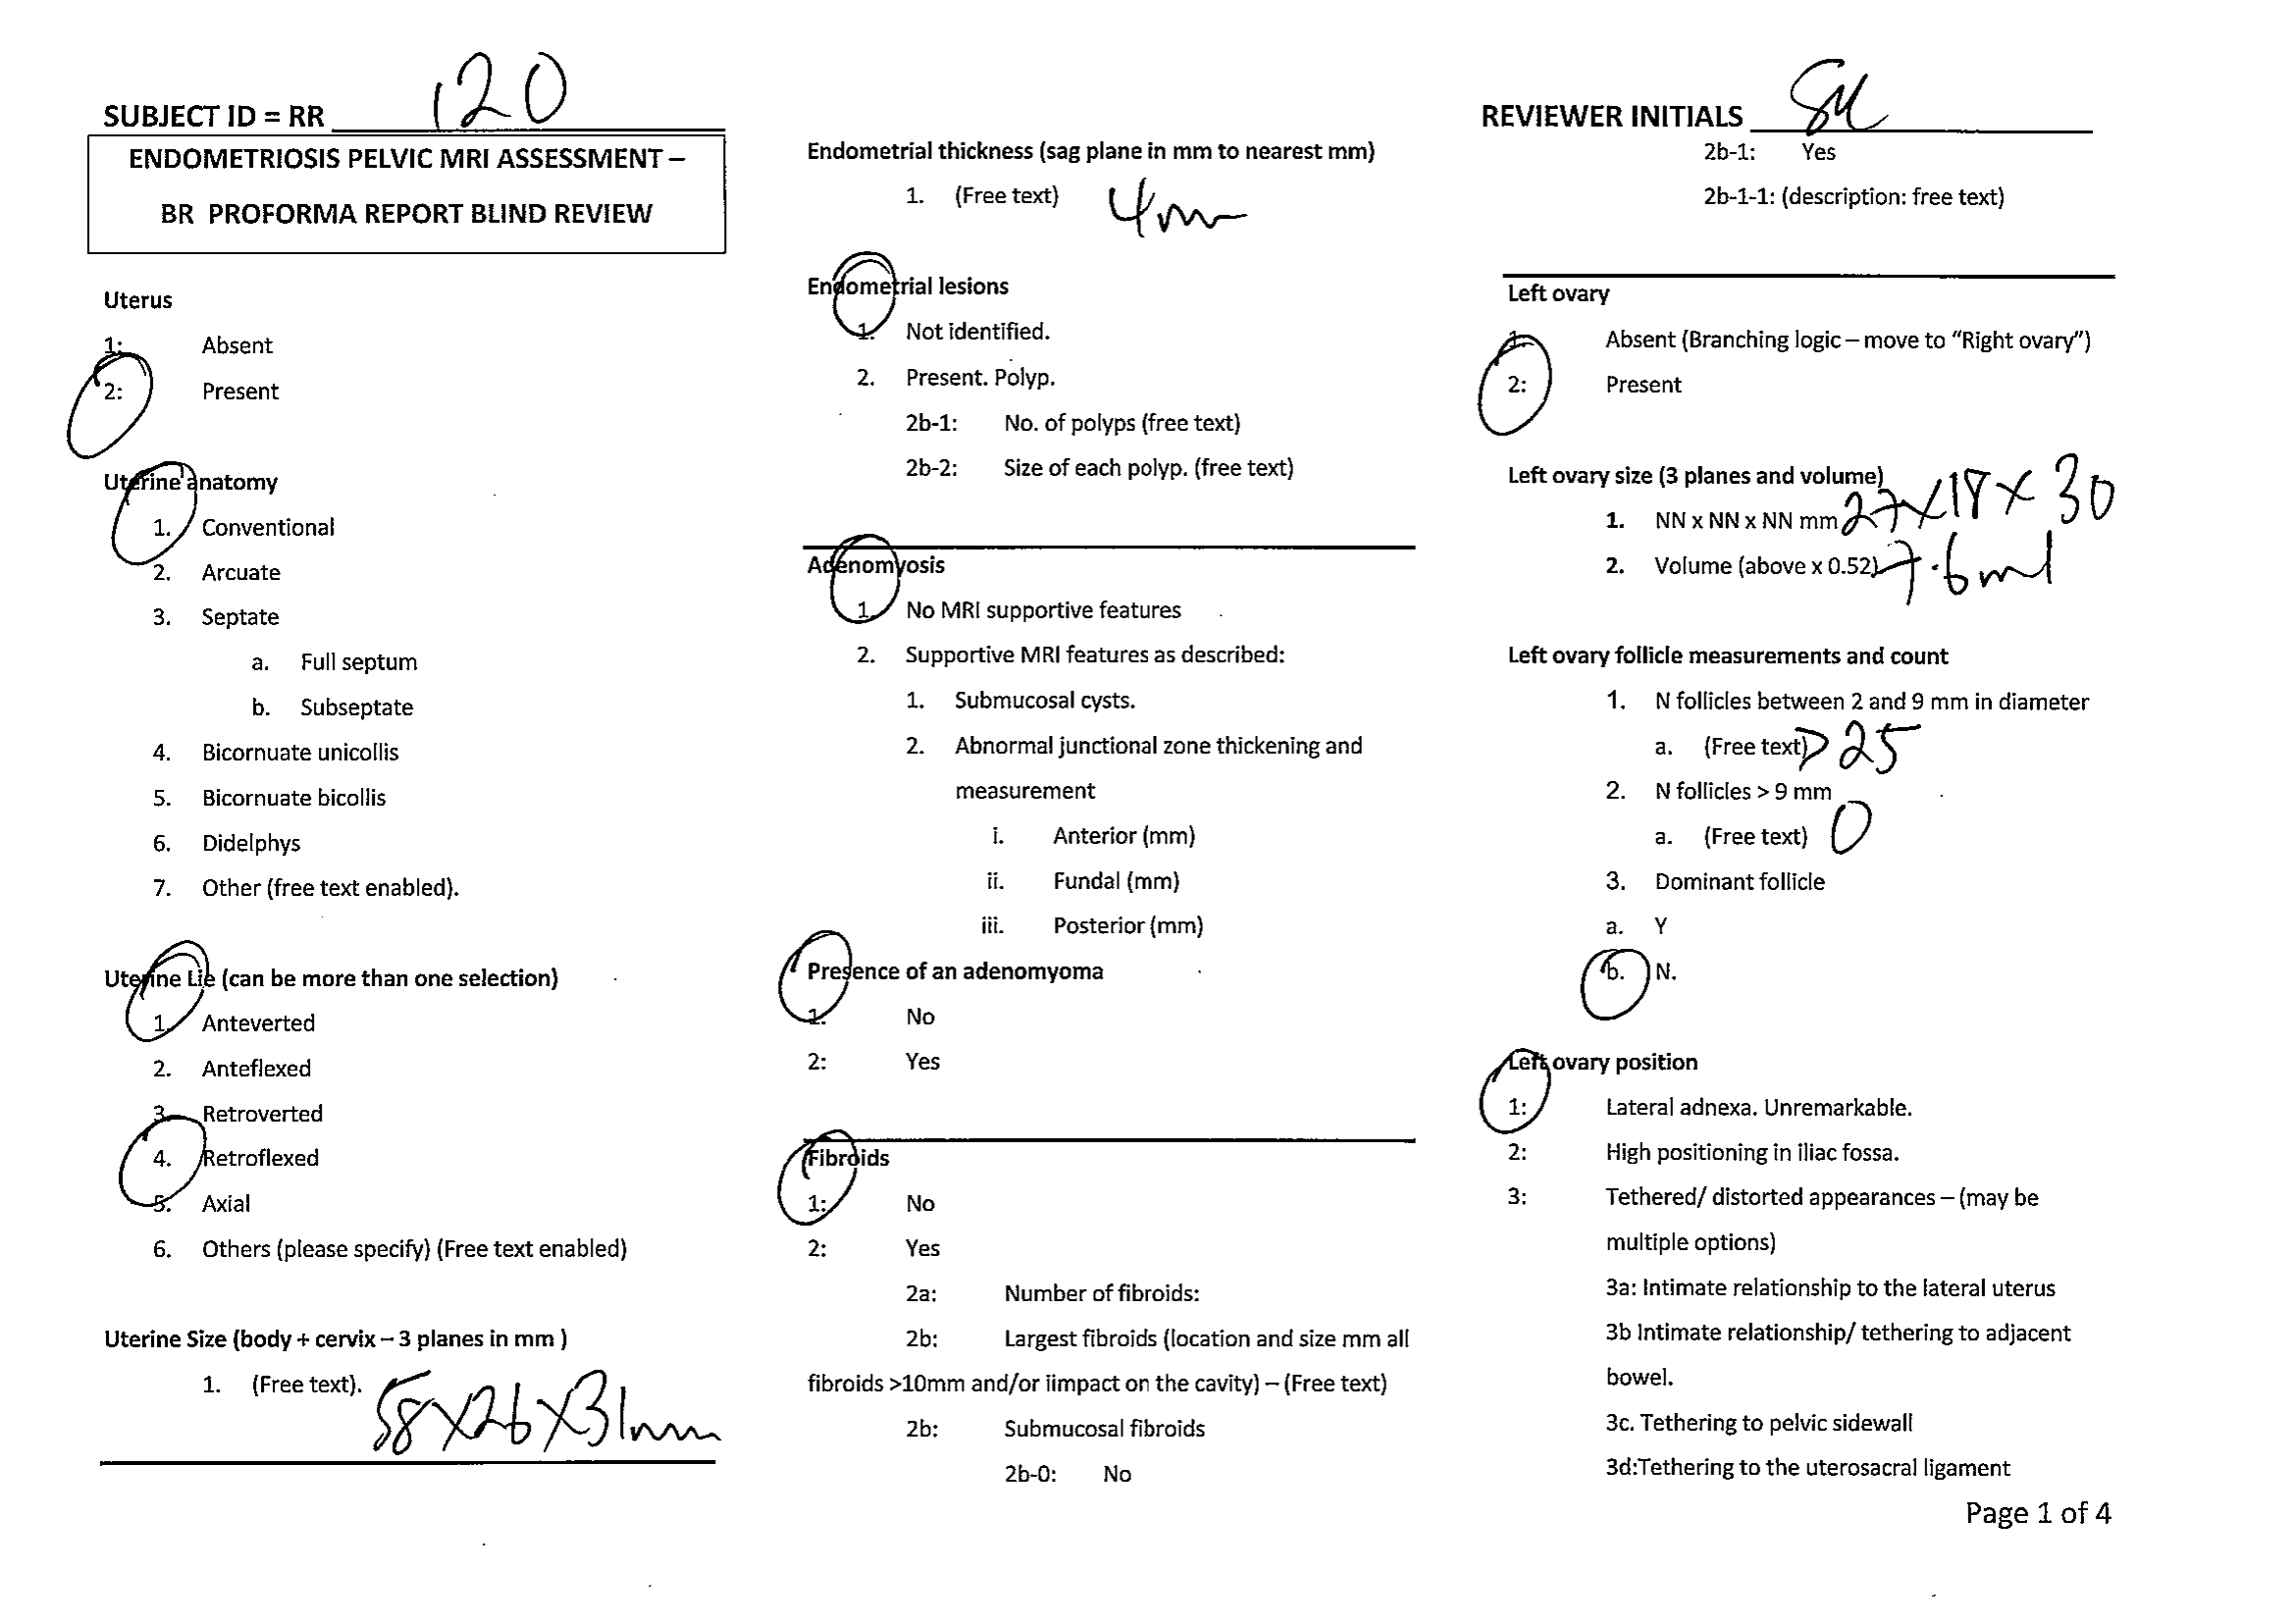 SUBJECT ID = RR 120
ENDOMETRIOSIS PELVIC MRI ASSESSMENT –
BR PROFORMA REPORT BLIND REVIEW
Uterus
1: Absent
2: Present
Uterine anatomy
1. Conventional
2. Arcuate
3. Septate
a. Full septum
b. Subseptate
4. Bicornuate unicollis
5. Bicornuate bicollis
6. Didelphys
7. Other (free text enabled).
Uterine Lie (can be more than one selection)
1. Anteverted
2. Anteflexed
3. Retroverted
4. Retroflexed
5. Axial
6. Others (please specify) (Free text enabled)
Uterine Size (body + cervix – 3 planes in mm )
1. (Free text). 58x26x31mm
Endometrial thickness (sag plane in mm to nearest mm)
1. (Free text) 4mm
Endometrial lesions
1. Not identified.
2. Present. Polyp.
2b-1: No. of polyps (free text)
2b-2: Size of each polyp. (free text)
Adenomyosis
1. No MRI supportive features
2. Supportive MRI features as described:
1. Submucosal cysts.
2. Abnormal junctional zone thickening and
measurement
i. Anterior (mm)
ii. Fundal (mm)
iii. Posterior (mm)
Presence of an adenomyoma
1: No
2: Yes
Fibroids
1: No
2: Yes
2a: Number of fibroids:
2b: Largest fibroids (location and size mm all
fibroids >10mm and/or iimpact on the cavity) – (Free text)
2b: Submucosal fibroids
2b-0: No
REVIEWER INITIALS SM
2b-1: Yes
2b-1-1: (description: free text)
Left ovary
1: Absent (Branching logic – move to “Right ovary”)
2: Present
Left ovary size (3 planes and volume)
1. NN x NN x NN mm 27x18x30
2. Volume (above x 0.52) 7.6ml
Left ovary follicle measurements and count
1. N follicles between 2 and 9 mm in diameter
a. (Free text) >25
2. N follicles > 9 mm
a. (Free text) 0
3. Dominant follicle
a. Y
b. N.
Left ovary position
1: Lateral adnexa. Unremarkable.
2: High positioning in iliac fossa.
3: Tethered/ distorted appearances – (may be
multiple options)
3a: Intimate relationship to the lateral uterus
3b Intimate relationship/ tethering to adjacent
bowel.
3c. Tethering to pelvic sidewall
3d:Tethering to the uterosacral ligament
Page 1 of 4